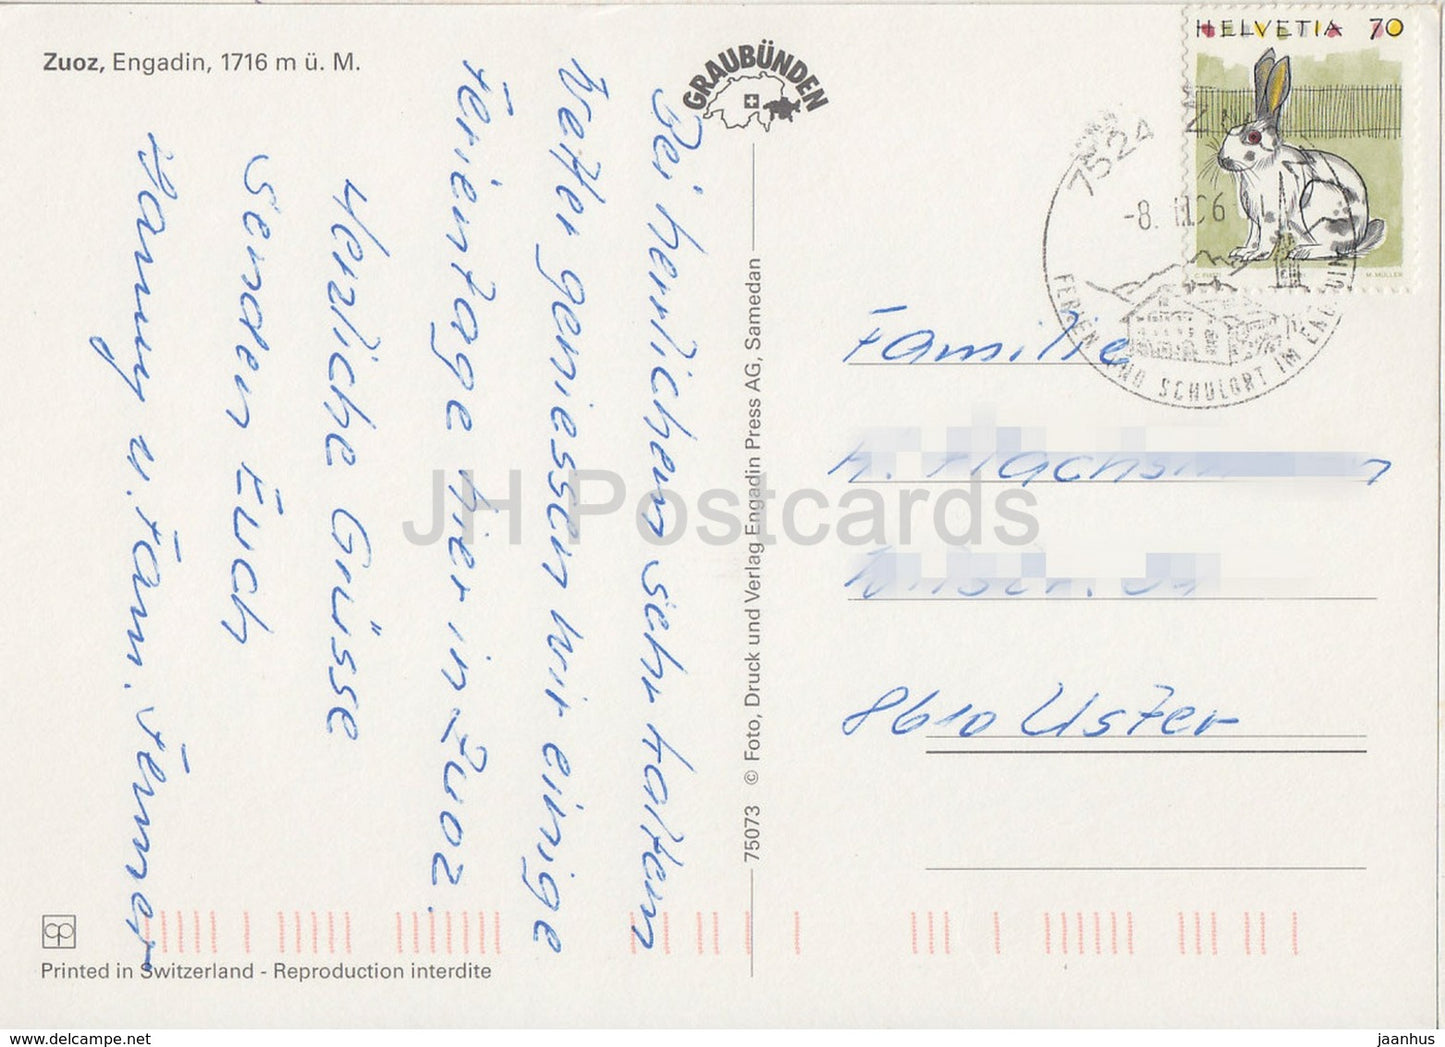 Zuoz, Engadin, 1716 m ü. M.
GRAUBÜNDEN
HELVETIA 70
7524
-8.
FERIEN UND SCHULORT IM ENGADIN
M. MÜLLER
Bei herrlichem sehr kaltem
Wetter geniessen wir einige
Ferientage hier in Zuoz.
Herzliche Grüsse
senden Euch
Hanny u. Fam. Fenner
75073 © Foto, Druck und Verlag Engadin Press AG, Samedan
Familie
8610 Uster
JH Postcards
cp
Printed in Switzerland - Reproduction interdite
hippostcard.com
jaanhus